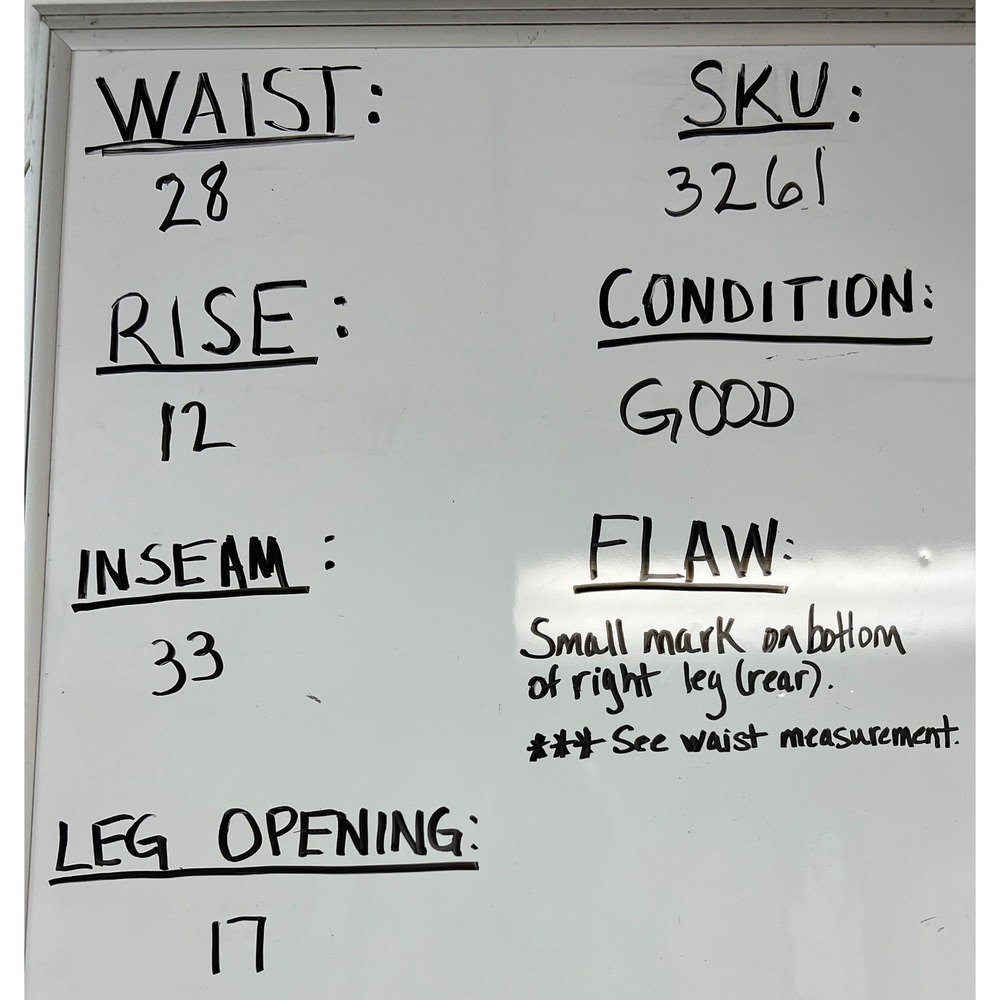 WAIST:
28
RISE:
12
INSEAM:
33
LEG OPENING:
17
SKU:
3261
CONDITION:
GOOD
FLAW:
Small mark on bottom
of right leg (rear).
*** See waist measurement.